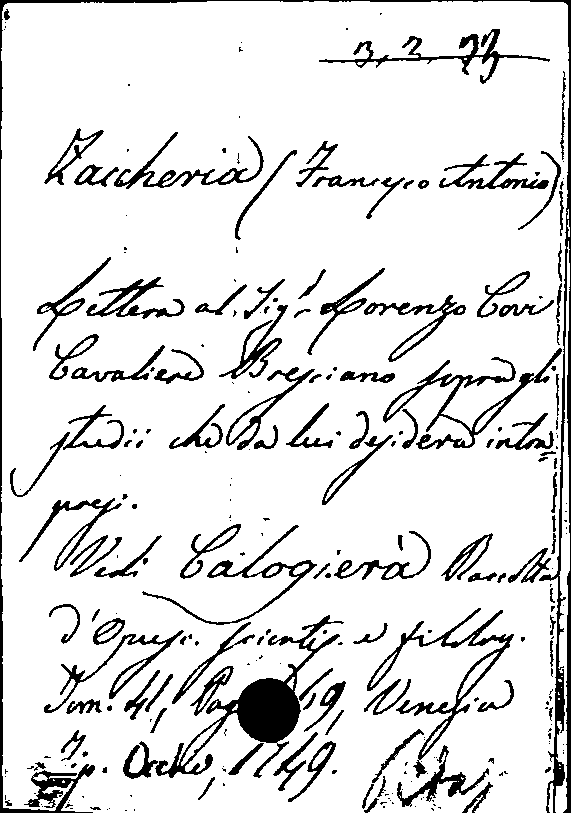 3. 2. 73
Zaccheria (Francesco Antonio)
Lettera al Sigr. Lorenzo Covi
Cavaliere Bresciano sopra gli
studii che da lui desidera intra=
presi.
Vedi Calogierà Raccolta
d'Opusc. scientif. e filolog.
Tom. 41, Pag 49, Venezia
Tip. Occhi, 1749.